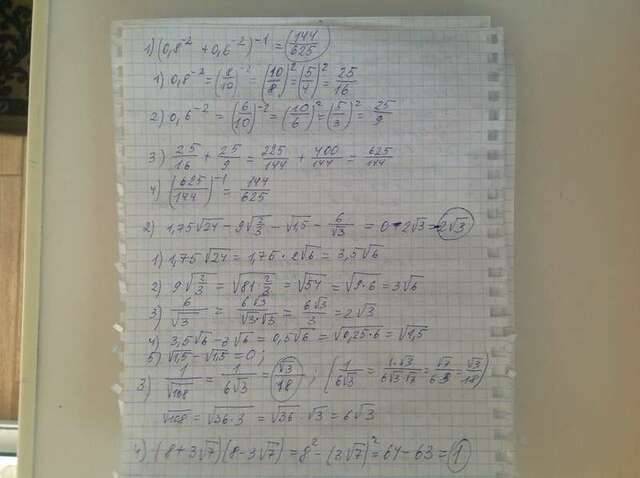 1) (0,8^-2 + 0,6^-2)^-1 = (144/625)
1) 0,8^-2 = (8/10)^-2 = (10/8)^2 = (5/4)^2 = 25/16
2) 0,6^-2 = (6/10)^-2 = (10/6)^2 = (5/3)^2 = 25/9
3) 25/16 + 25/9 = 225/144 + 400/144 = 625/144
4) (625/144)^-1 = 144/625
2) 1,75√24 - 9√(2/3) - √1,5 - 6/√3 = 0 - 2√3 = -2√3
1) 1,75√24 = 1,75 · 2√6 = 3,5√6
2) 9√(2/3) = √(81 · 2/3) = √54 = √(9·6) = 3√6
3) 6/√3 = 6√3/(√3·√3) = 6√3/3 = 2√3
4) 3,5√6 - 3√6 = 0,5√6 = √(0,25·6) = √1,5
5) √1,5 - √1,5 = 0;
3) 1/√108 = 1/(6√3) = √3/18 ; (1/(6√3) =
√108 = √(36·3) = √36 · √3 = 6√3
4) (8 + 3√7)(8 - 3√7) = 8^2 - (3√7)^2 = 64 - 63 = 1